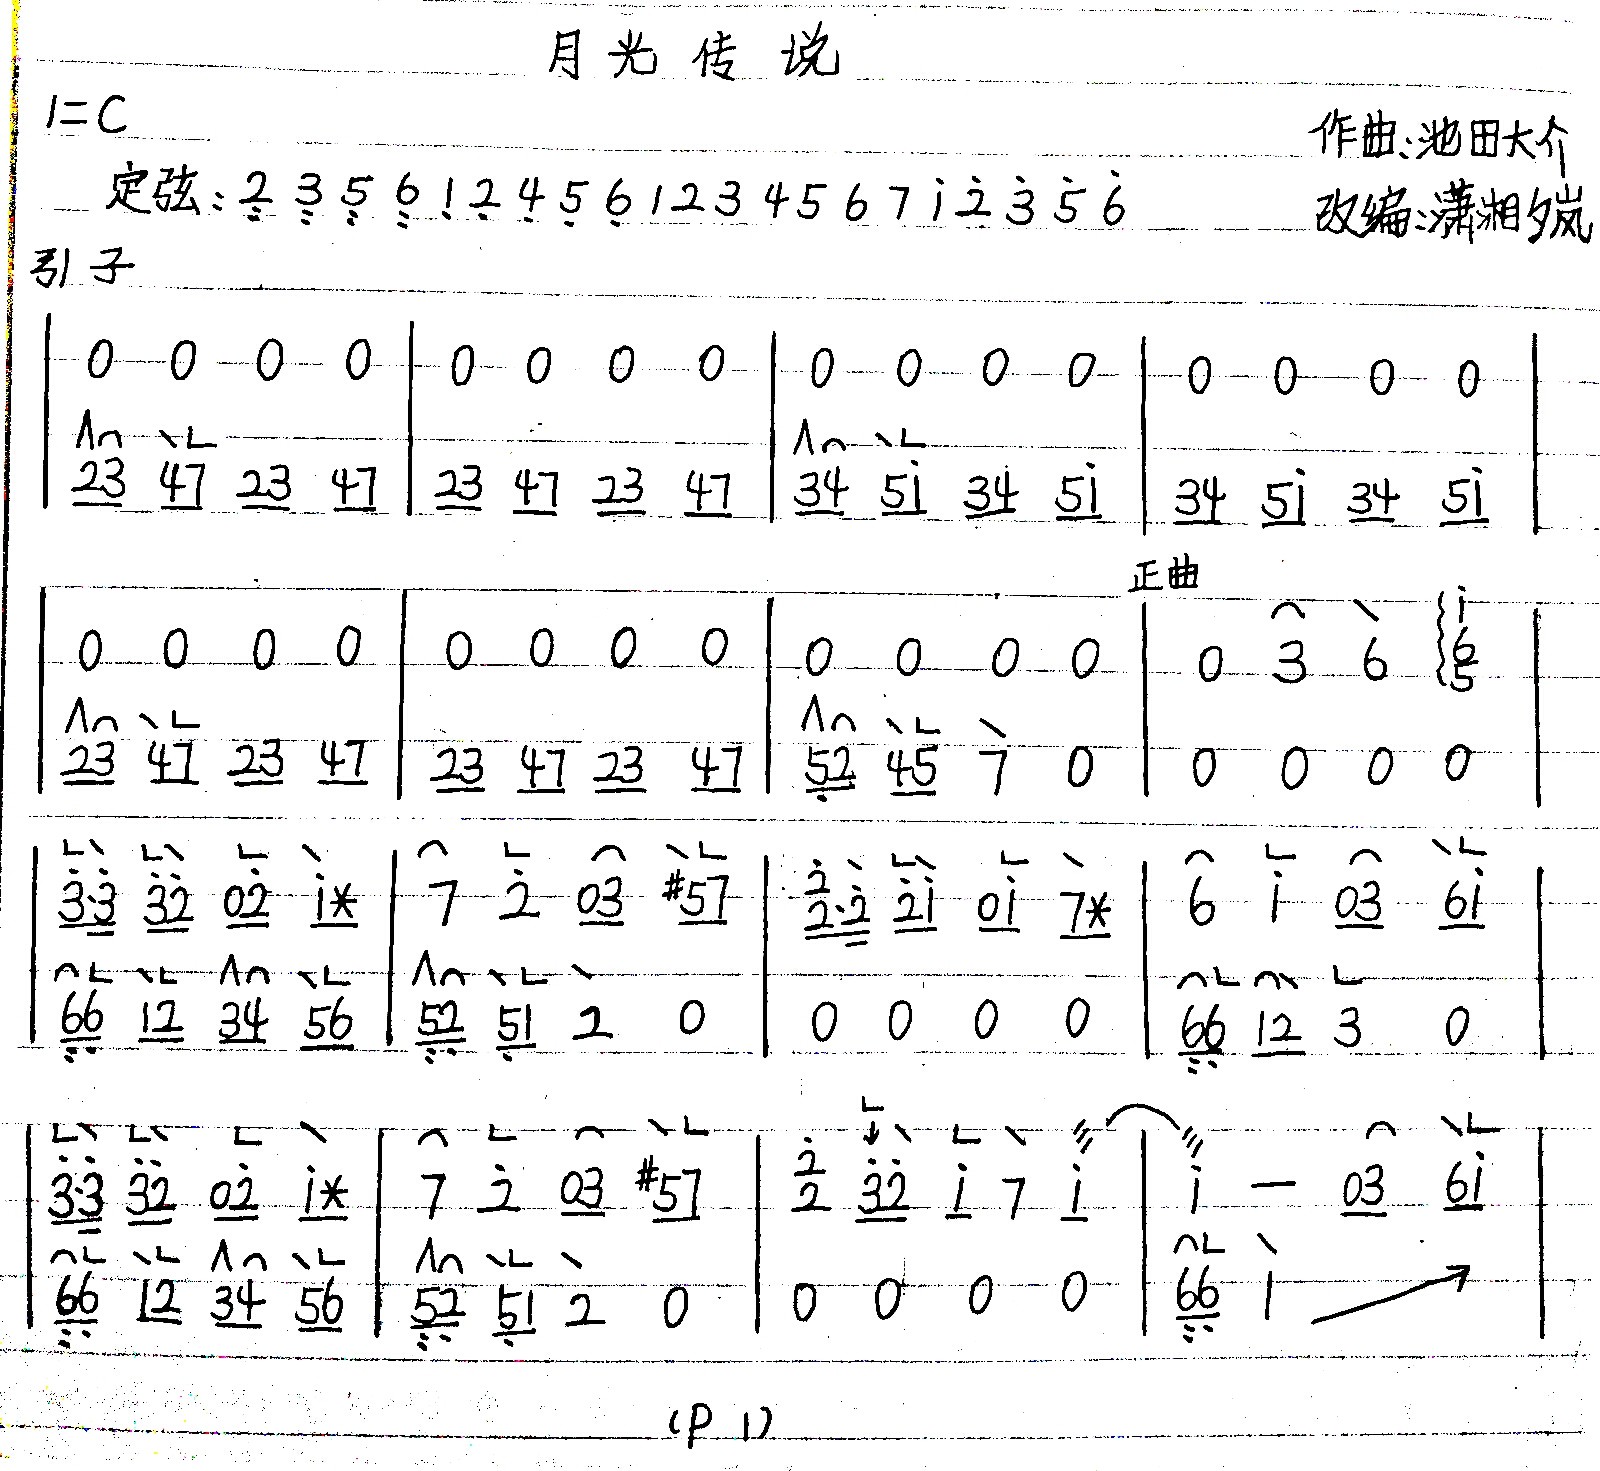 月光传说
1=C
作曲:池田大介
定弦:2̤ 3̤ 5̤ 6̤ 1̣ 2̣ 4̣ 5̣ 6̣ 1 2 3 4 5 6 7 1̇ 2̇ 3̇ 5̇ 6̇
改编:潇湘夕岚
引子
| 0 0 0 0 | 0 0 0 0 | 0 0 0 0 | 0 0 0 0 |
| 23 47 23 47 | 23 47 23 47 | 34 51̇ 34 51̇ | 34 51̇ 34 51̇ |
正曲
| 0 0 0 0 | 0 0 0 0 | 0 0 0 0 | 0 3 6 1̇65 |
| 23 47 23 47 | 23 47 23 47 | 5̣2 45 7 0 | 0 0 0 0 |
| 3̇·3̇ 3̇2̇ 02̇ 1̇* | 7 2̇ 03 #57 | 2̇2·2̇ 2̇1̇ 01̇ 7* | 6 1̇ 03 61̇ |
| 6̤6̤ 12 34 56 | 5̤2̤ 5̣1 2 0 | 0 0 0 0 | 6̤6̤ 12 3 0 |
| 3̇·3̇ 3̇2̇ 02̇ 1̇* | 7 2̇ 03 #57 | 2̇2 3̇2̇ 1̇ 7 1̇ | 1̇ — 03 61̇ |
| 6̤6̤ 12 34 56 | 5̤2̤ 5̣1 2 0 | 0 0 0 0 | 6̤6̤ 1
(P 1)